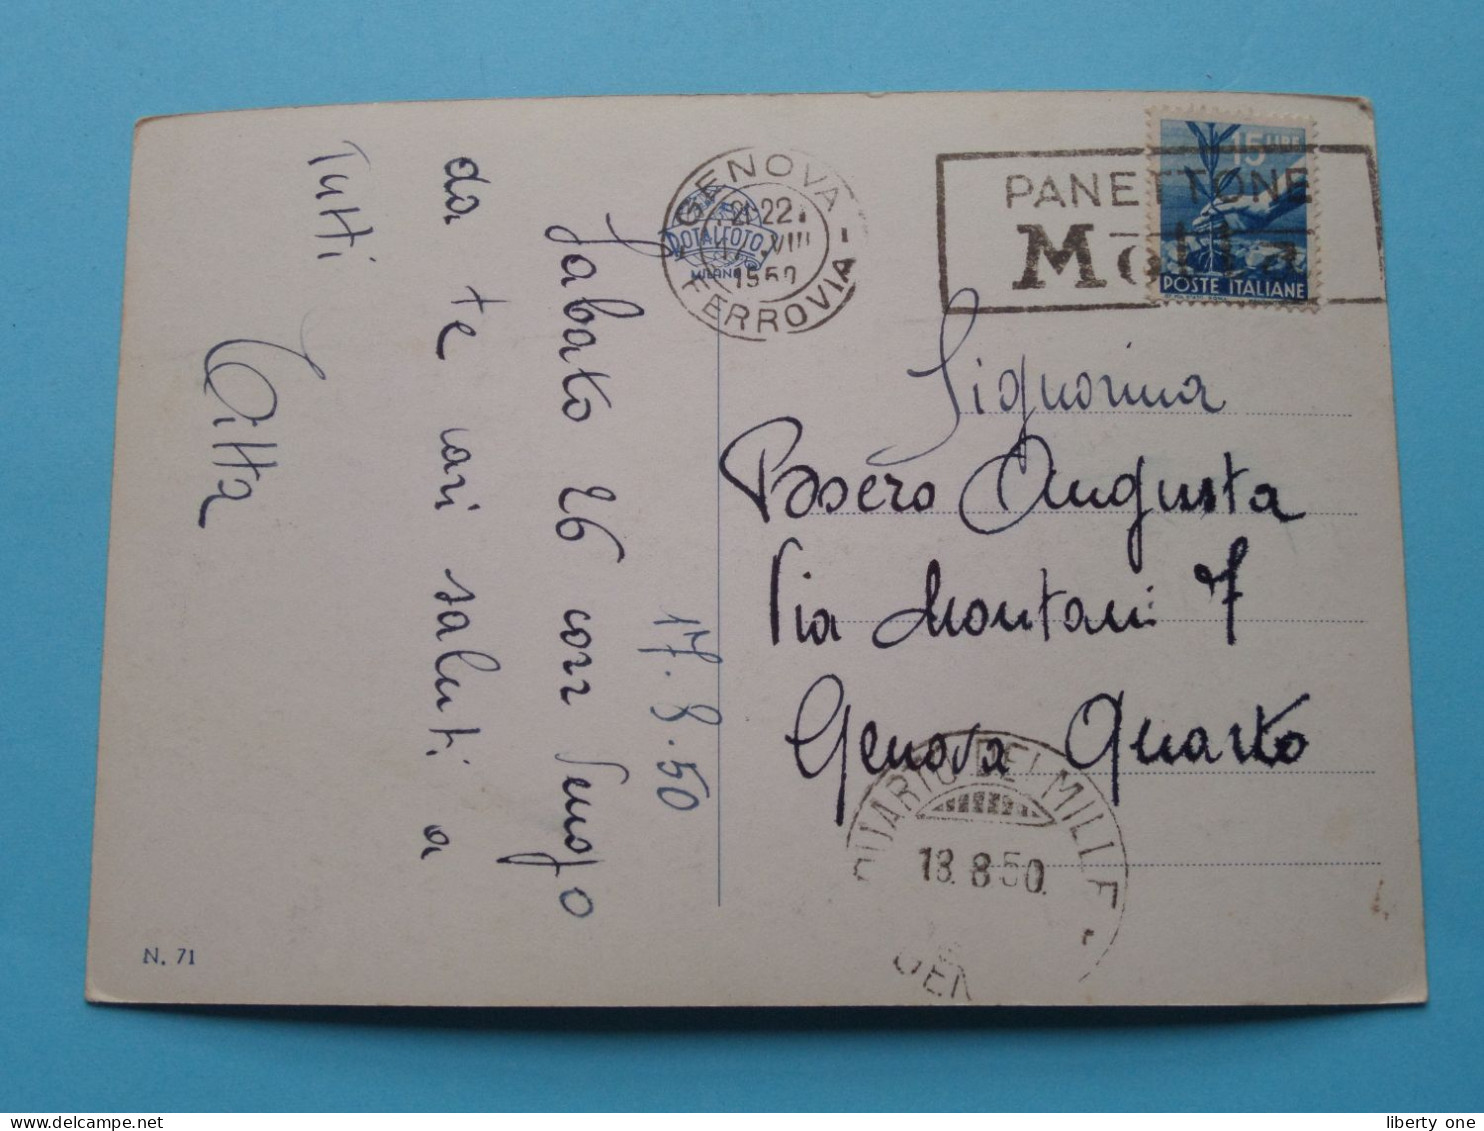 17.8.50
Sabato 26 corr vengo
da te cari saluti a
Tutti
Titta
N. 71
GENOVA
21-22
VIII
1950
FERROVIA
ROTALFOTO
MILANO
PANETTONE
Motta
15 LIRE
POSTE ITALIANE
Signorina
Basero Augusta
Via Montani 7
Genova Quarto
QUARTO DEI MILLE
18.8.50.
GEN
liberty one